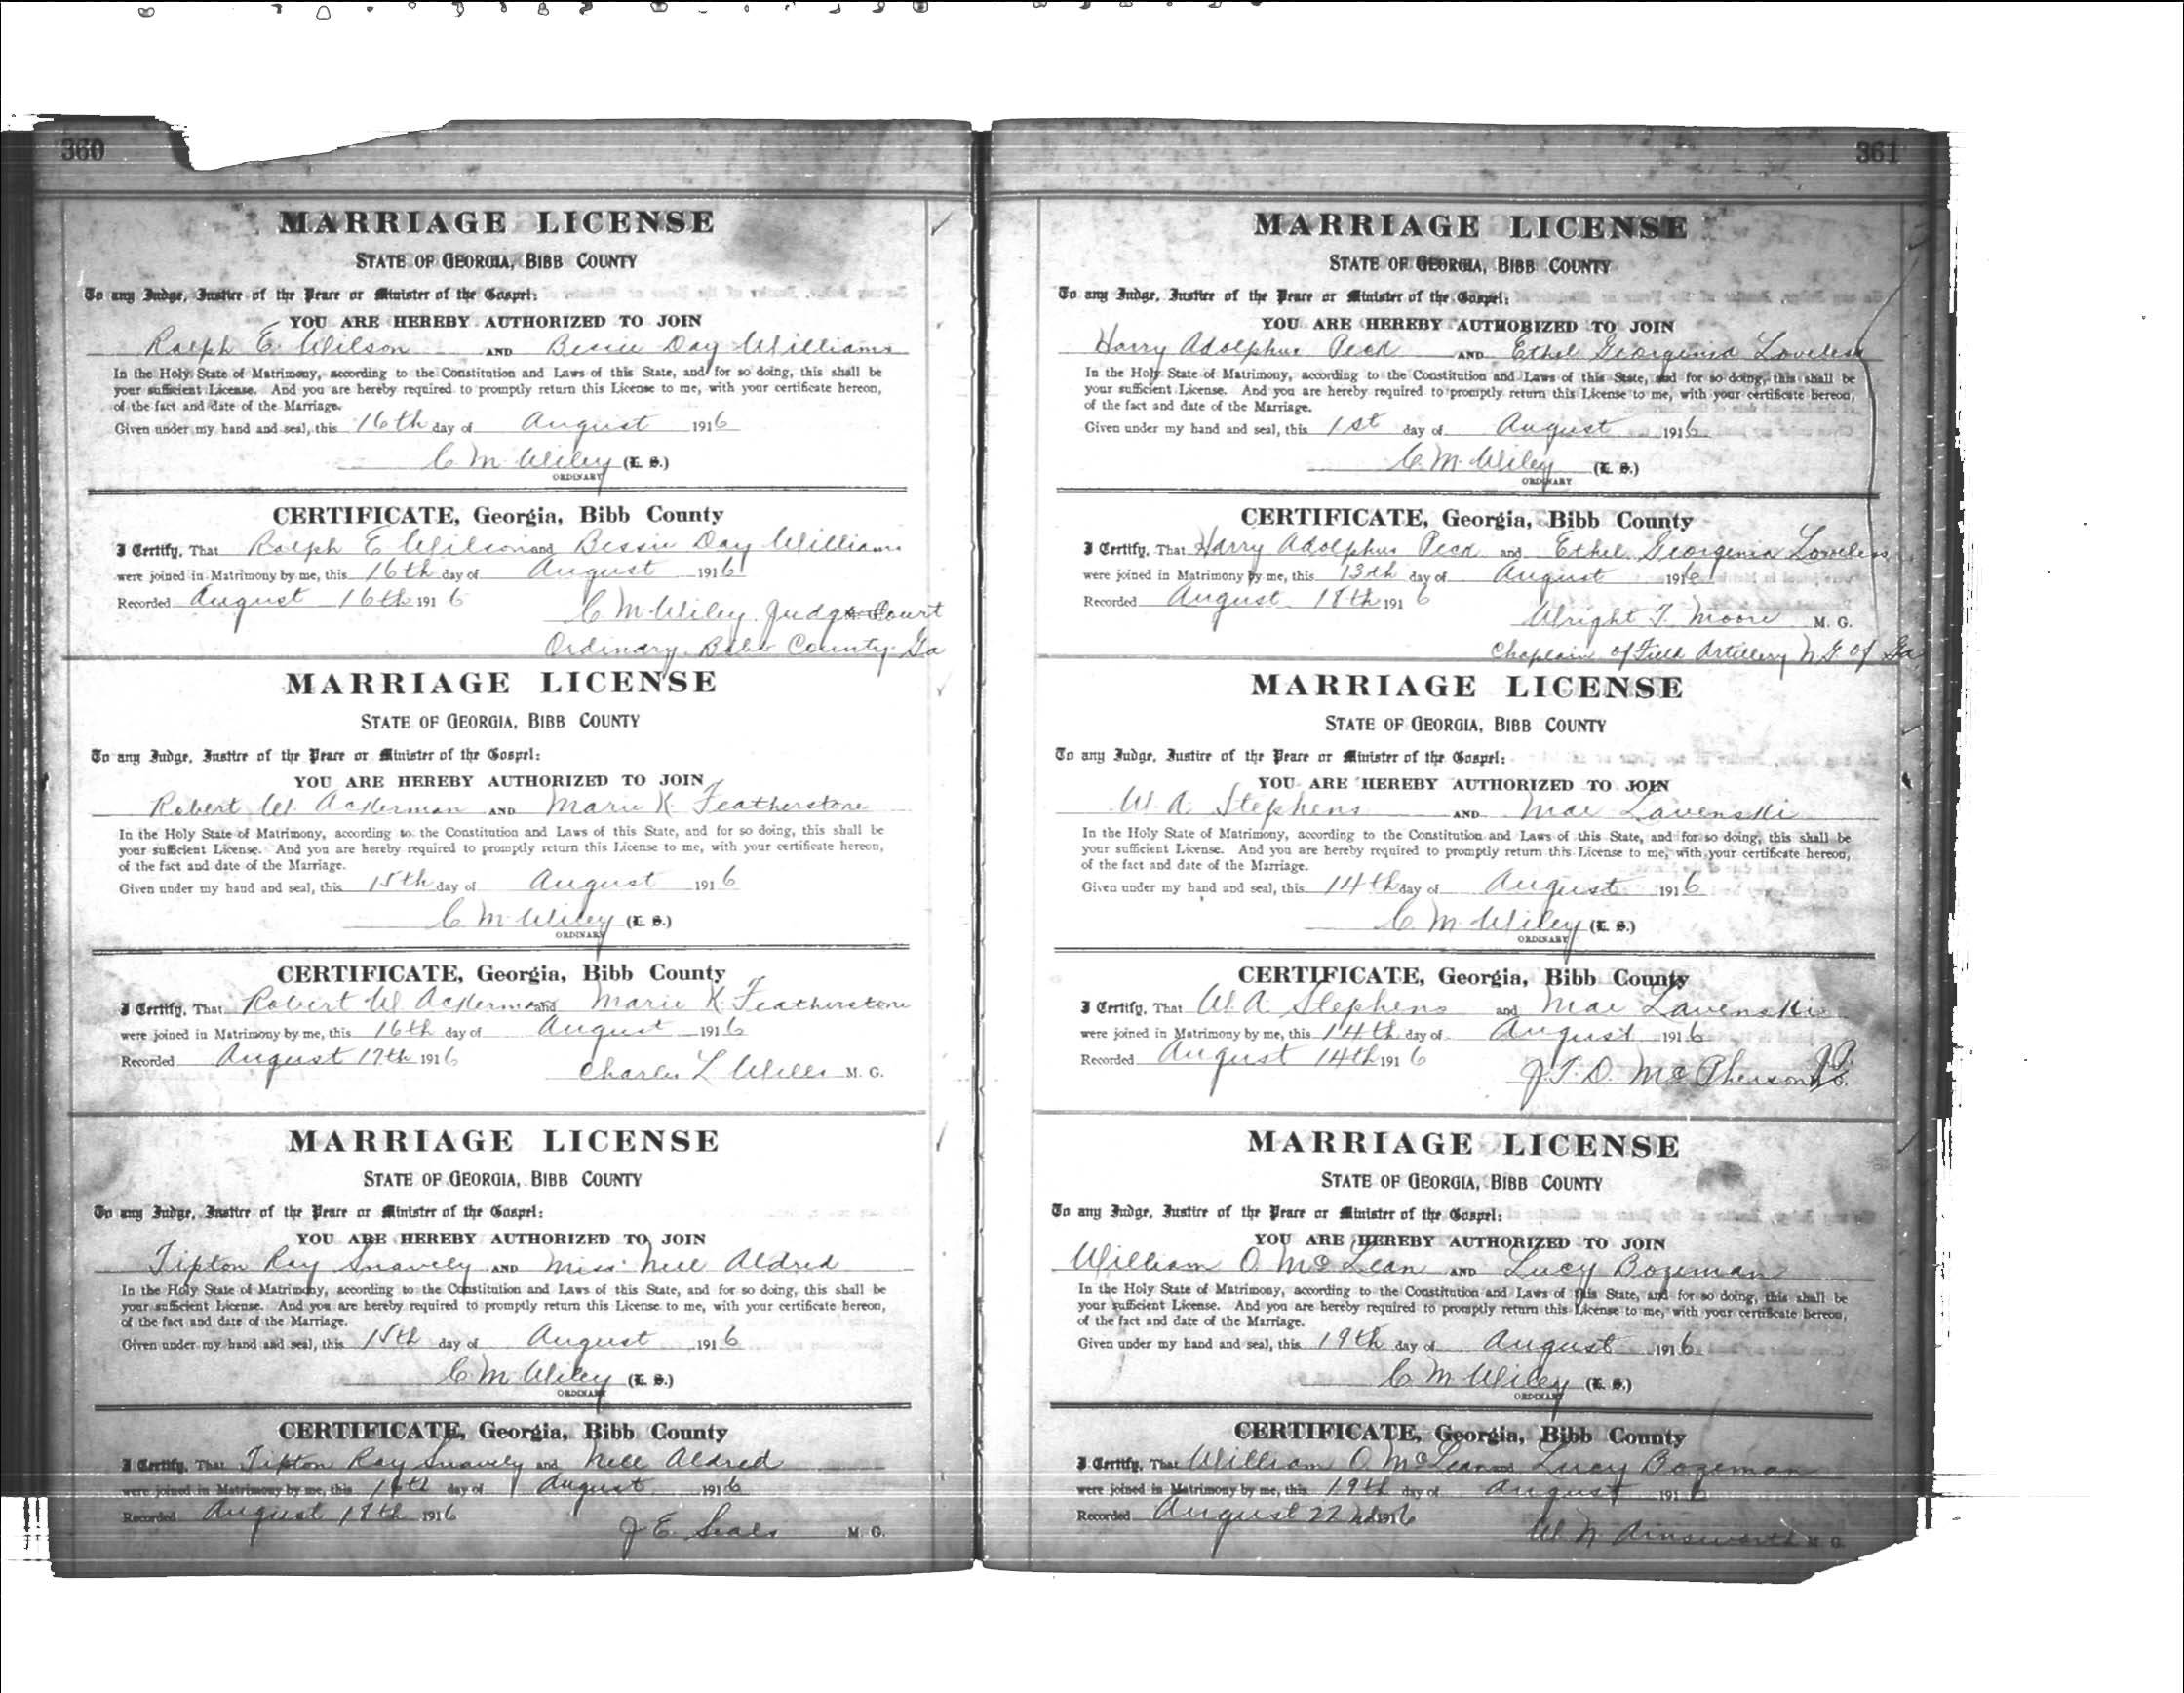 360
MARRIAGE LICENSE
STATE OF GEORGIA, BIBB COUNTY
To any Judge, Justice of the Peace or Minister of the Gospel:
YOU ARE HEREBY AUTHORIZED TO JOIN
Ralph E. Wilson AND Bessie Day Williams
In the Holy State of Matrimony, according to the Constitution and Laws of this State, and for so doing, this shall be
your sufficient License. And you are hereby required to promptly return this License to me, with your certificate hereon,
of the fact and date of the Marriage.
Given under my hand and seal, this 16th day of August 1916
C. M. Wiley (L. S.)
ORDINARY
CERTIFICATE, Georgia, Bibb County
I Certify, That Ralph E Wilson and Bessie Day Williams
were joined in Matrimony by me, this 16th day of August 1916
Recorded August 16th 1916
C M Wiley Judge Court
Ordinary Bibb County Ga
MARRIAGE LICENSE
STATE OF GEORGIA, BIBB COUNTY
To any Judge, Justice of the Peace or Minister of the Gospel:
YOU ARE HEREBY AUTHORIZED TO JOIN
Robert W. Ackerman AND Marie K. Featherstone
In the Holy State of Matrimony, according to the Constitution and Laws of this State, and for so doing, this shall be
your sufficient License. And you are hereby required to promptly return this License to me, with your certificate hereon,
of the fact and date of the Marriage.
Given under my hand and seal, this 15th day of August 1916
C M Wiley (L. S.)
ORDINARY
CERTIFICATE, Georgia, Bibb County
I Certify, That Robert W Ackerman and Marie K. Featherstone
were joined in Matrimony by me, this 16th day of August 1916
Recorded August 17th 1916
Charles L M. G.
MARRIAGE LICENSE
STATE OF GEORGIA, BIBB COUNTY
To any Judge, Justice of the Peace or Minister of the Gospel:
YOU ARE HEREBY AUTHORIZED TO JOIN
Tipton Ray Snavely AND Miss Nell Aldred
In the Holy State of Matrimony, according to the Constitution and Laws of this State, and for so doing, this shall be
your sufficient License. And you are hereby required to promptly return this License to me, with your certificate hereon,
of the fact and date of the Marriage.
Given under my hand and seal, this 15th day of August 1916
C M Wiley (L. S.)
ORDINARY
CERTIFICATE, Georgia, Bibb County
I Certify, That Tipton Ray Snavely and Nell Aldred
were joined in Matrimony by me, this 16th day of August 1916
Recorded August 1916
J E Seals M. G.
361
MARRIAGE LICENSE
STATE OF GEORGIA, BIBB COUNTY
To any Judge, Justice of the Peace or Minister of the Gospel:
YOU ARE HEREBY AUTHORIZED TO JOIN
Harry Adolphus Peed AND Ethel Georgenia Loveless
In the Holy State of Matrimony, according to the Constitution and Laws of this State, and for so doing, this shall be
your sufficient License. And you are hereby required to promptly return this License to me, with your certificate hereon,
of the fact and date of the Marriage.
Given under my hand and seal, this 1st day of August 1916
C. M. Wiley (L. S.)
ORDINARY
CERTIFICATE, Georgia, Bibb County
I Certify, That Harry Adolphus Peed and Ethel Georgenia Loveless
were joined in Matrimony by me, this 13th day of August 1916
Recorded August 18th 1916
Wright T. Moore M. G.
Chaplain of Field Artillery N. G of Ga
MARRIAGE LICENSE
STATE OF GEORGIA, BIBB COUNTY
To any Judge, Justice of the Peace or Minister of the Gospel:
YOU ARE HEREBY AUTHORIZED TO JOIN
W. A Stephens AND Mae Lavenski
In the Holy State of Matrimony, according to the Constitution and Laws of this State, and for so doing, this shall be
your sufficient License. And you are hereby required to promptly return this License to me, with your certificate hereon,
of the fact and date of the Marriage.
Given under my hand and seal, this 14th day of August 1916
C M Wiley (L. S.)
ORDINARY
CERTIFICATE, Georgia, Bibb County
I Certify, That W. A. Stephens and Mae Lavenskie
were joined in Matrimony by me, this 14th day of August 1916
Recorded August 14th 1916
J. T. D. McPherson J.P.
MARRIAGE LICENSE
STATE OF GEORGIA, BIBB COUNTY
To any Judge, Justice of the Peace or Minister of the Gospel:
YOU ARE HEREBY AUTHORIZED TO JOIN
William O. McLean AND Lucy Bozeman
In the Holy State of Matrimony, according to the Constitution and Laws of this State, and for so doing, this shall be
your sufficient License. And you are hereby required to promptly return this License to me, with your certificate hereon,
of the fact and date of the Marriage.
Given under my hand and seal, this 19th day of August 1916
C M Wiley (L. S.)
ORDINARY
CERTIFICATE, Georgia, Bibb County
I Certify, That William O McLean and Lucy Bozeman
were joined in Matrimony by me, this 19th day of August 1916
Recorded August 22nd 1916
W. N. Ainsworth M. G.